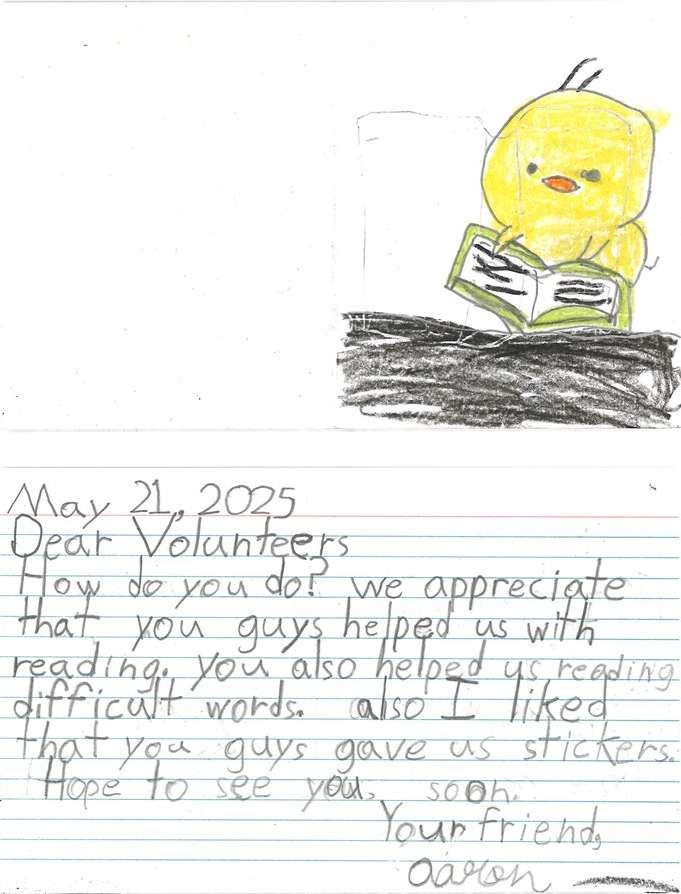 May 21, 2025
Dear Volunteers
How do you do? we appreciate
that you guys helped us with
reading. you also helped us reading
difficult words. also I liked
that you guys gave us stickers.
Hope to see you. soon.
Your friend,
aaron